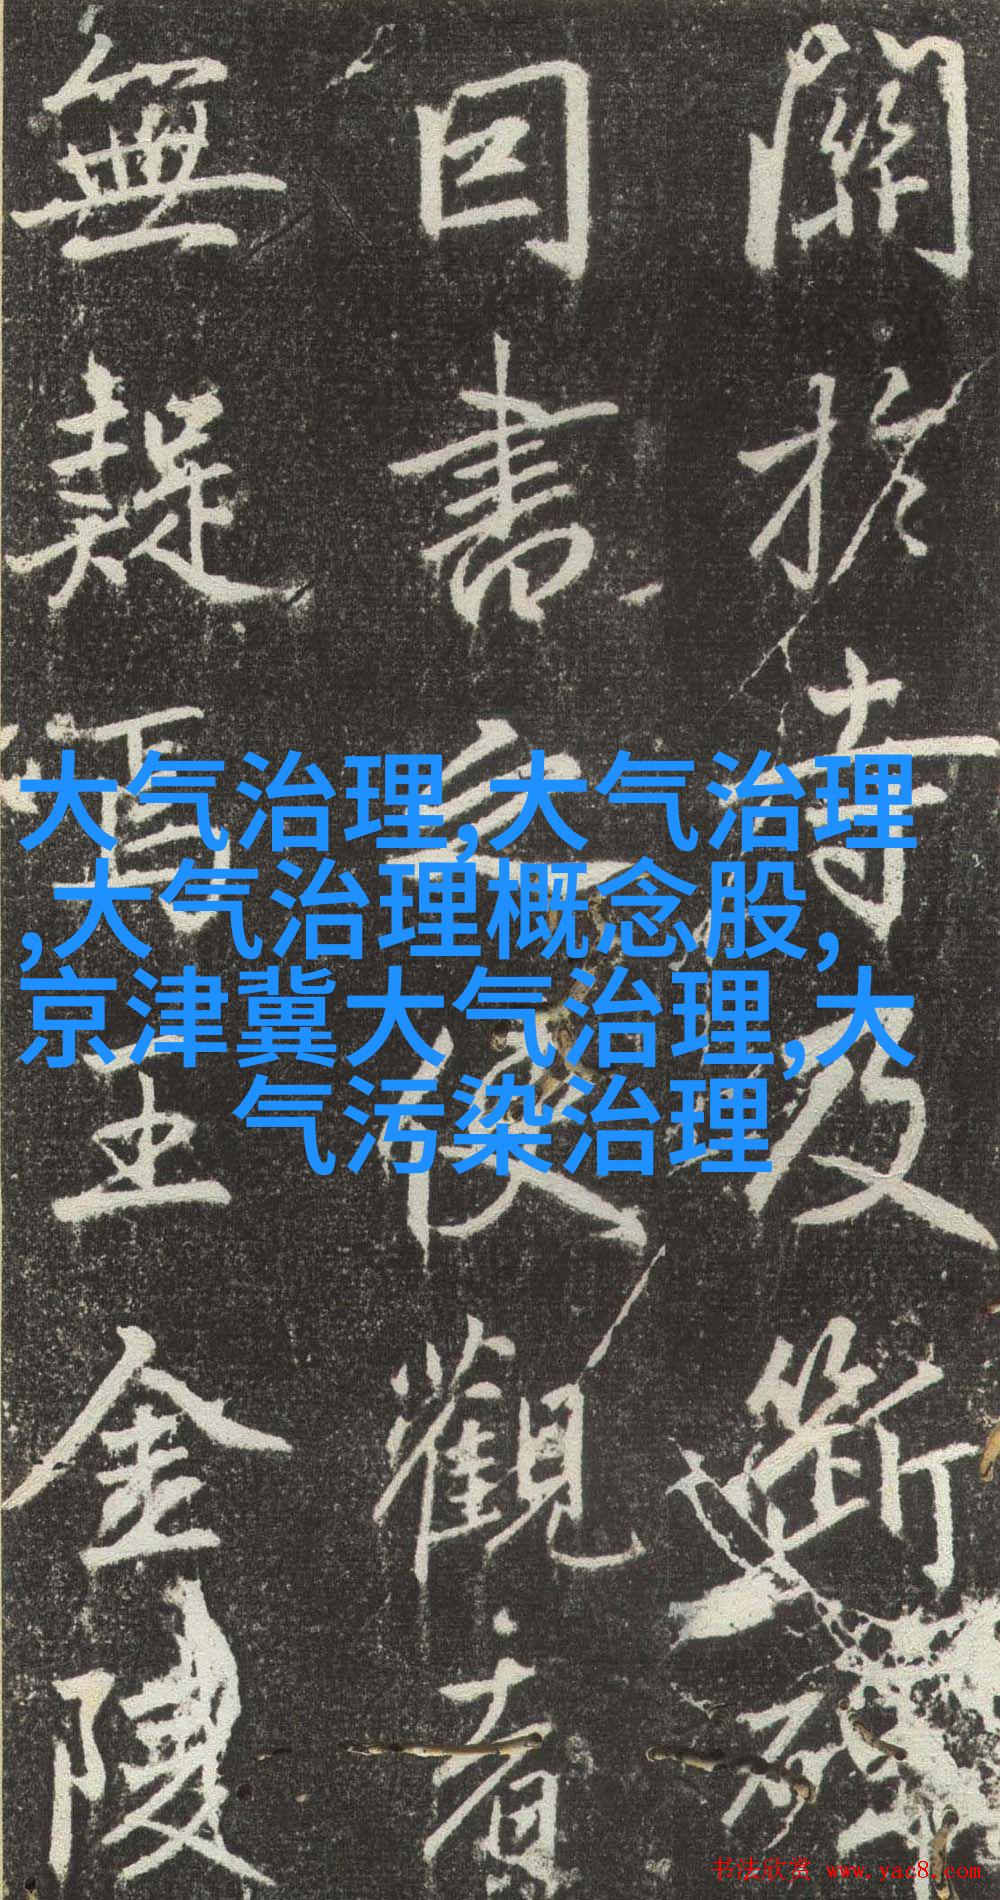 關於寺及斷碑
因書之使觀者
無疑焉王金陵
大气治理,大气治理
,大气治理概念股,
京津冀大气治理,大
气污染治理
书法欣赏 www.yac8.com